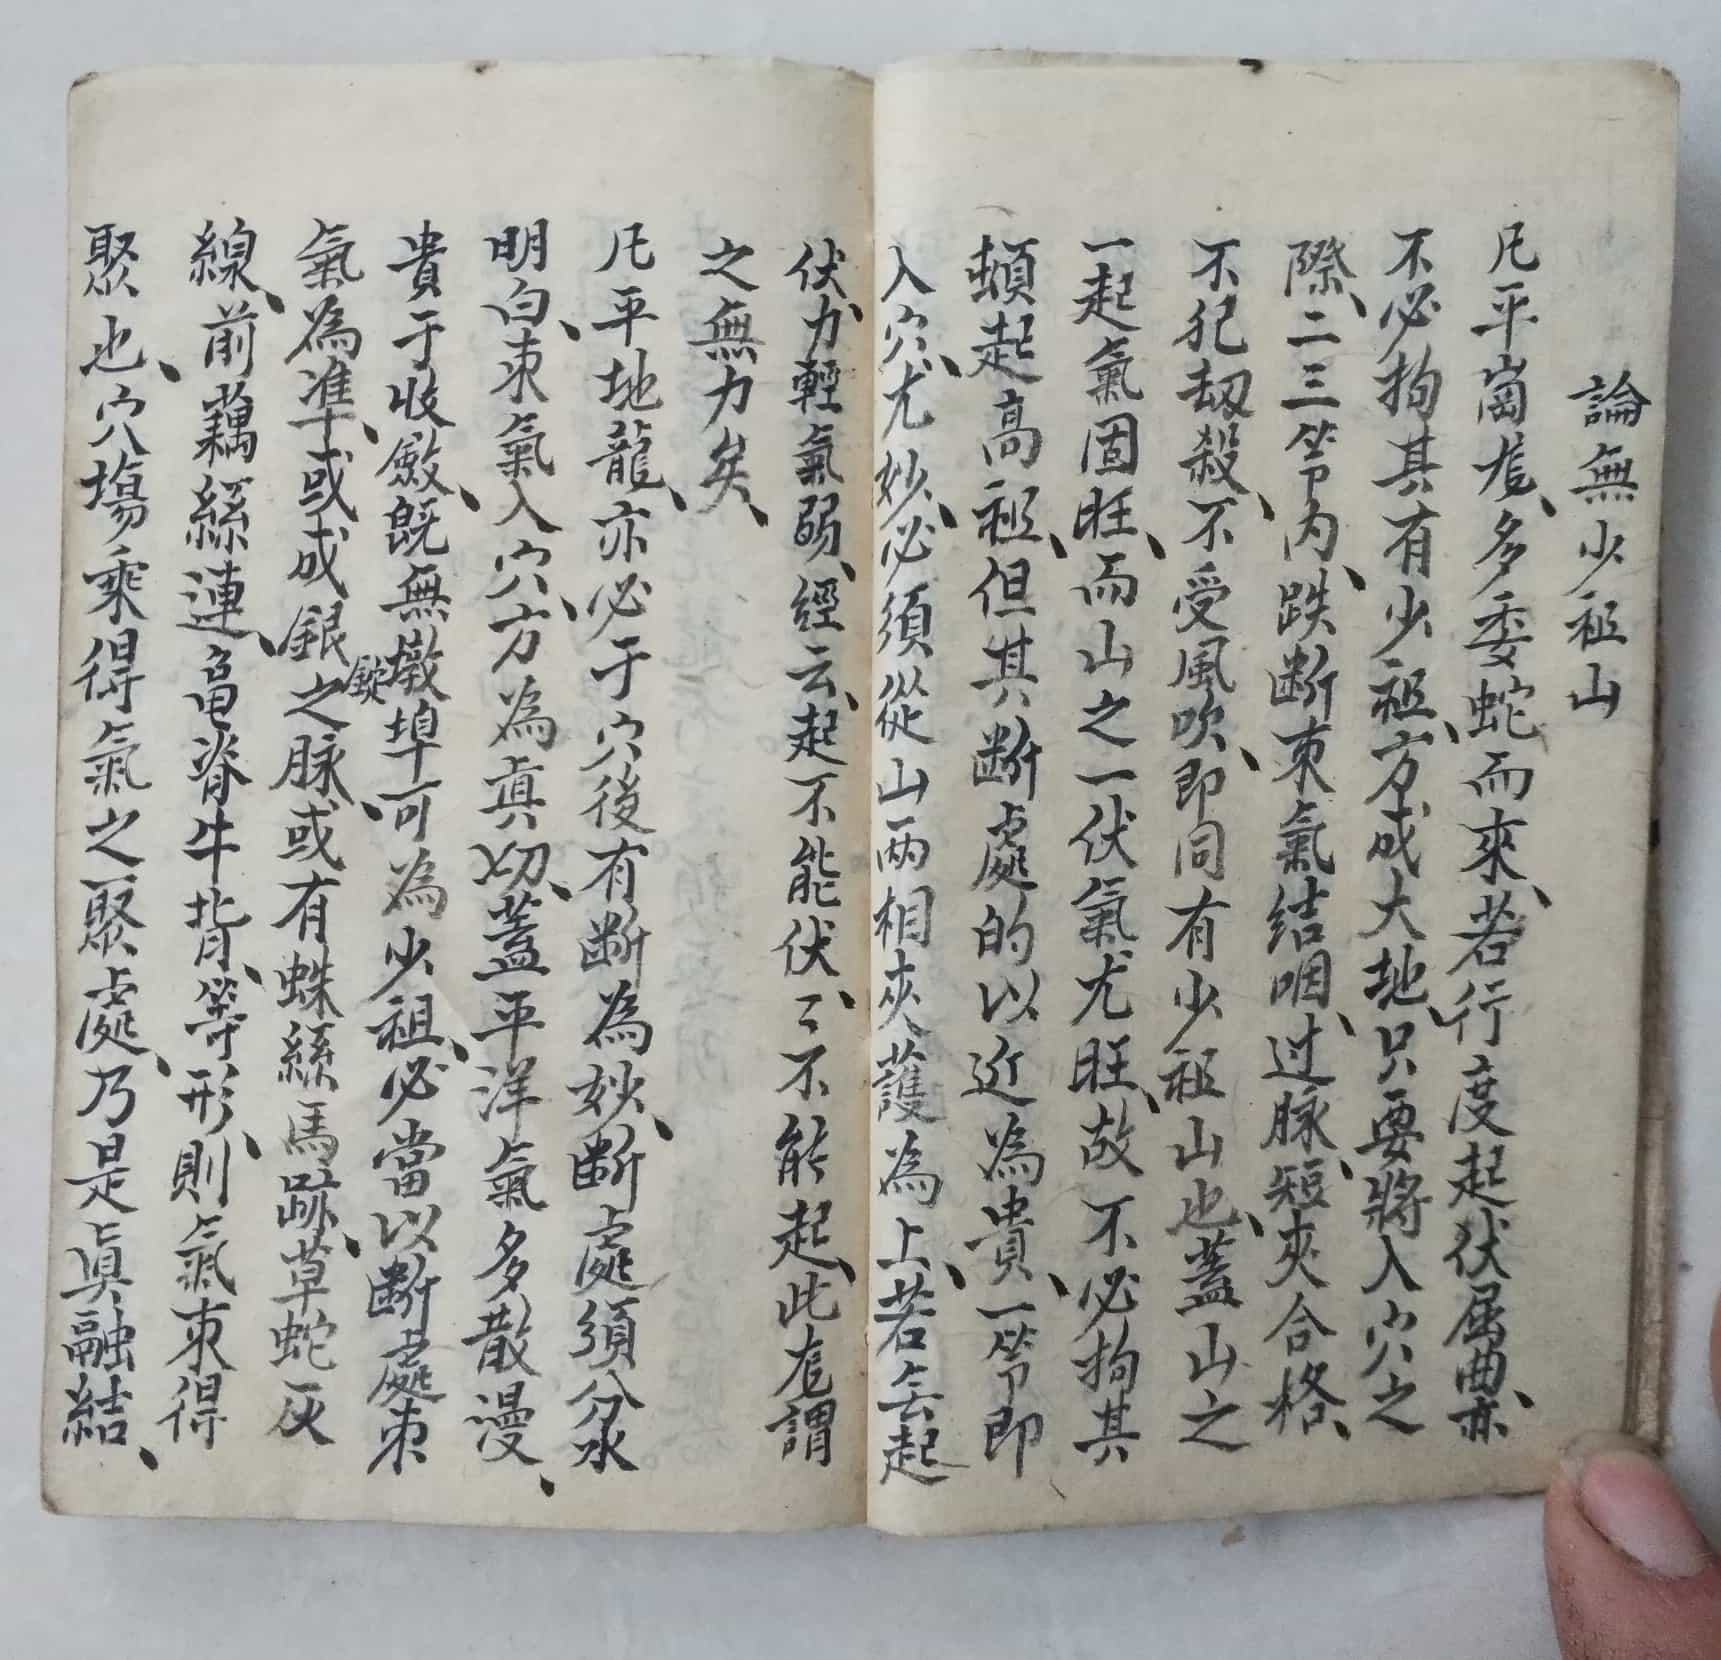 論無少祖山
凡平崗龍多委蛇而來若行度起伏屈曲亦
不必拘其有少祖方成大地只要將入穴之
際二三節內跌断束氣结咽过脉短夾合格
不犯刼殺不受風吹即同有少祖山也蓋山之
一起氣固旺而山之一伏氣尤旺故不必拘其
頓起高祖但其断處的以近為貴一節即
入穴尤妙必須從山両相夾護為上若去起
伏力輕氣弱經云起不能伏〻不能起此龙謂
之無力矣
凡平地龍亦必于穴後有断為妙断處須分水
明白束氣入穴方為真切蓋平洋氣多散漫
貴于收斂既無墩埠可為少祖必當以断處束
氣為準或成銀錠之脉或有蛛絲馬跡草蛇灰
線前藕絲連龟脊牛背等形則氣束得
聚也穴塲乘得氣之聚處乃是真融結